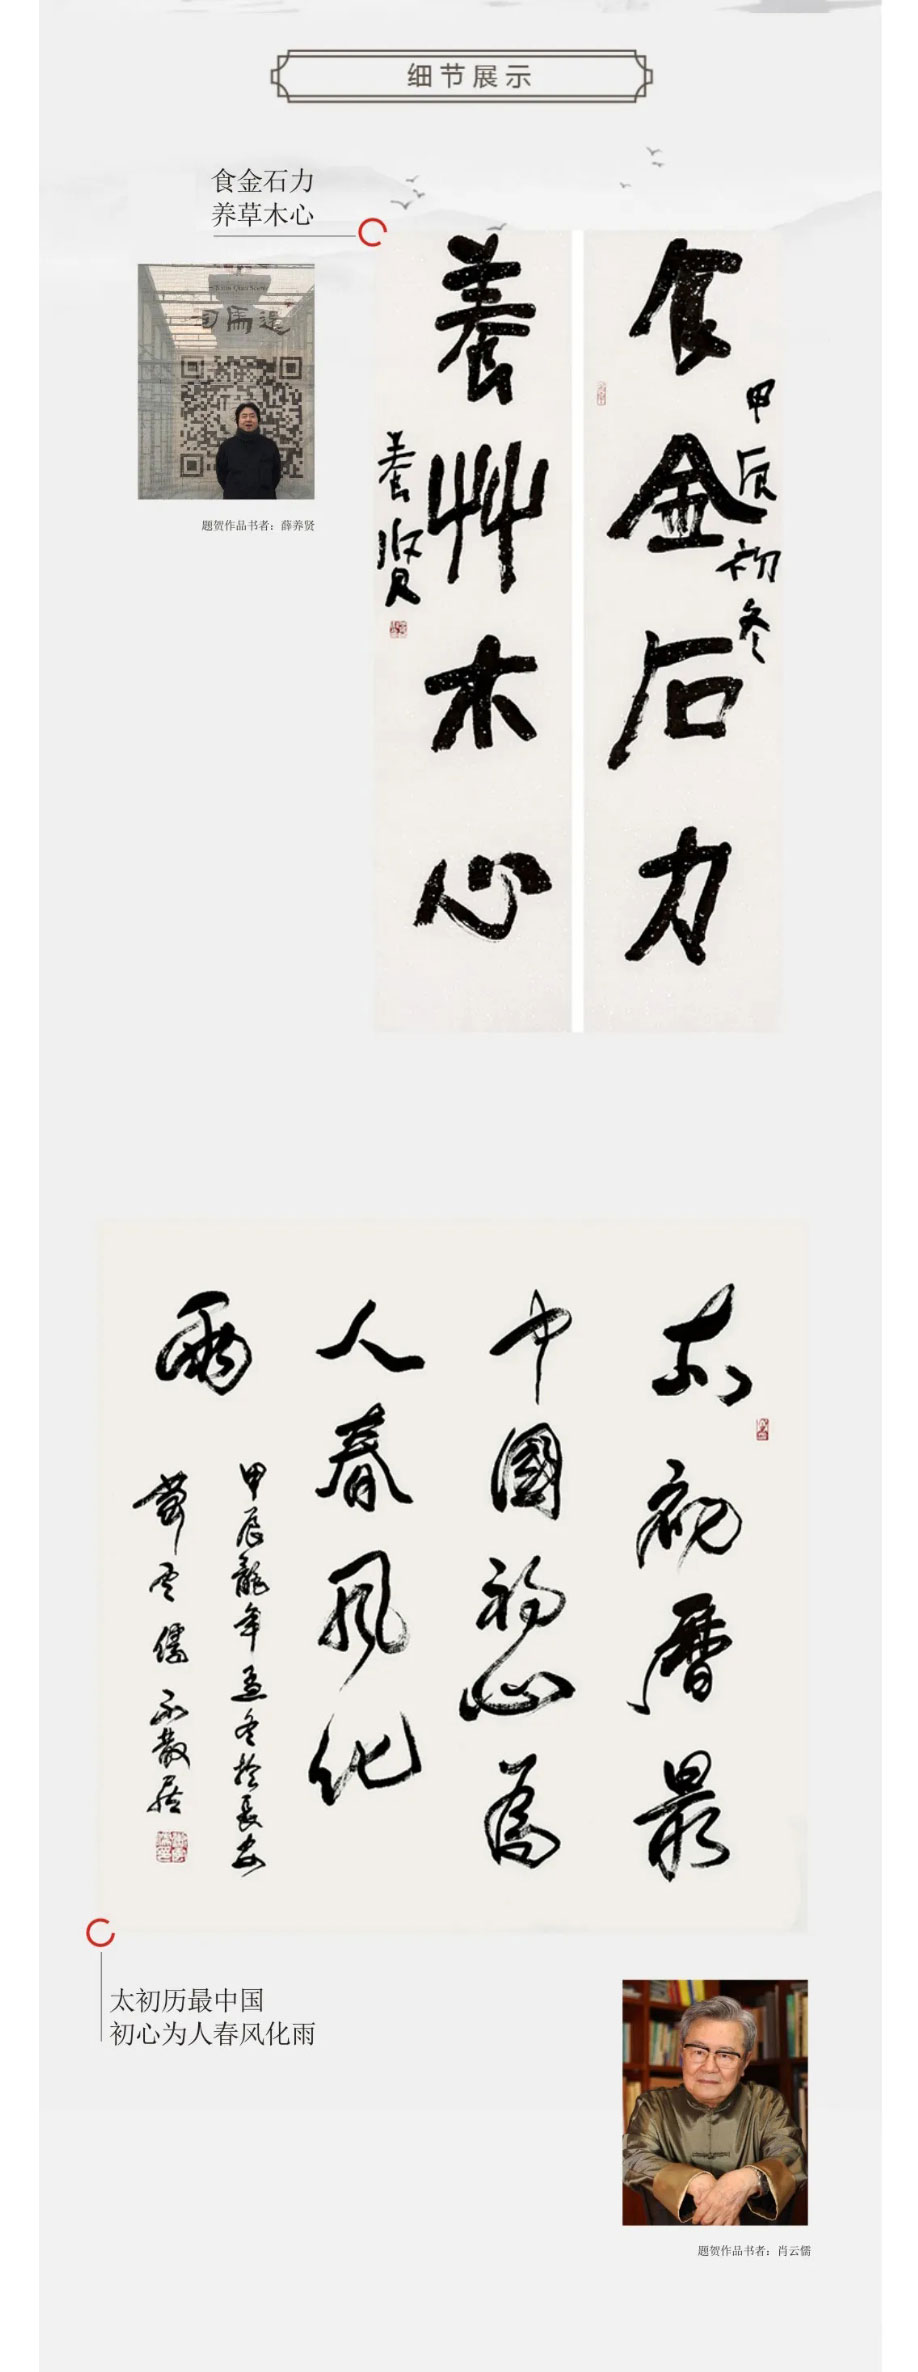 细节展示
食金石力
养草木心
司馬遷
题贺作品书者：薛养贤
食金石力
甲辰初冬
養艸木心
養贤
太初曆最
中國初心為
人春風化
雨
甲辰龍年孟冬於長安
云儒 不散居
太初历最中国
初心为人春风化雨
题贺作品书者：肖云儒